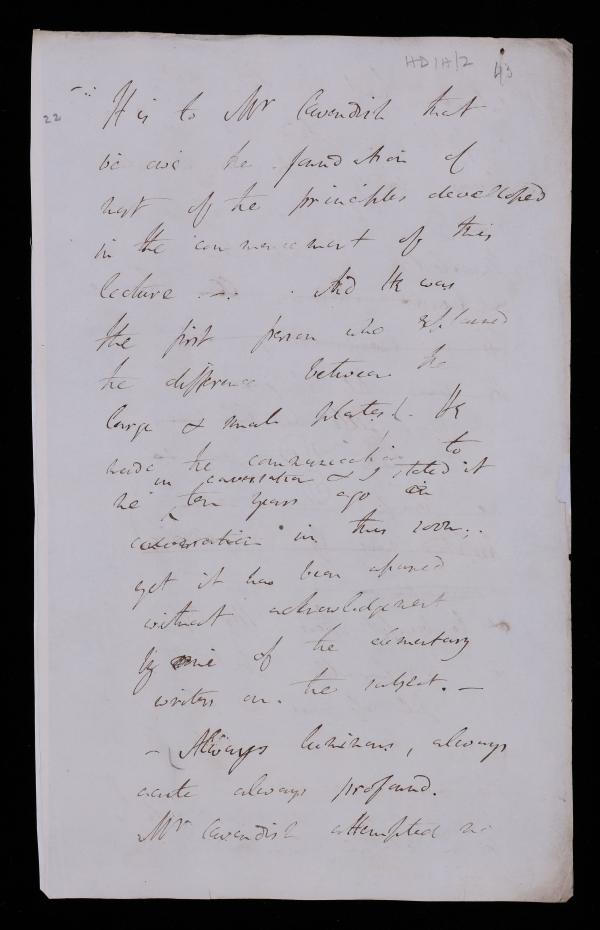 HD/H/2 43
22
It is to Mr Cavendish that
we owe the foundation of
most of the principles developed
in the commencement of this
lecture —. And He was
the first person who explained
the difference between the
large & small plates. He
made the communication to
in conversation & I stated it
me ten years ago in
conversation in this room;.
yet it has been assumed
without acknowledgement
by one of the elementary
writers on the subject. —
— Always luminous, always
acute always profound.
Mr Cavendish attempted no